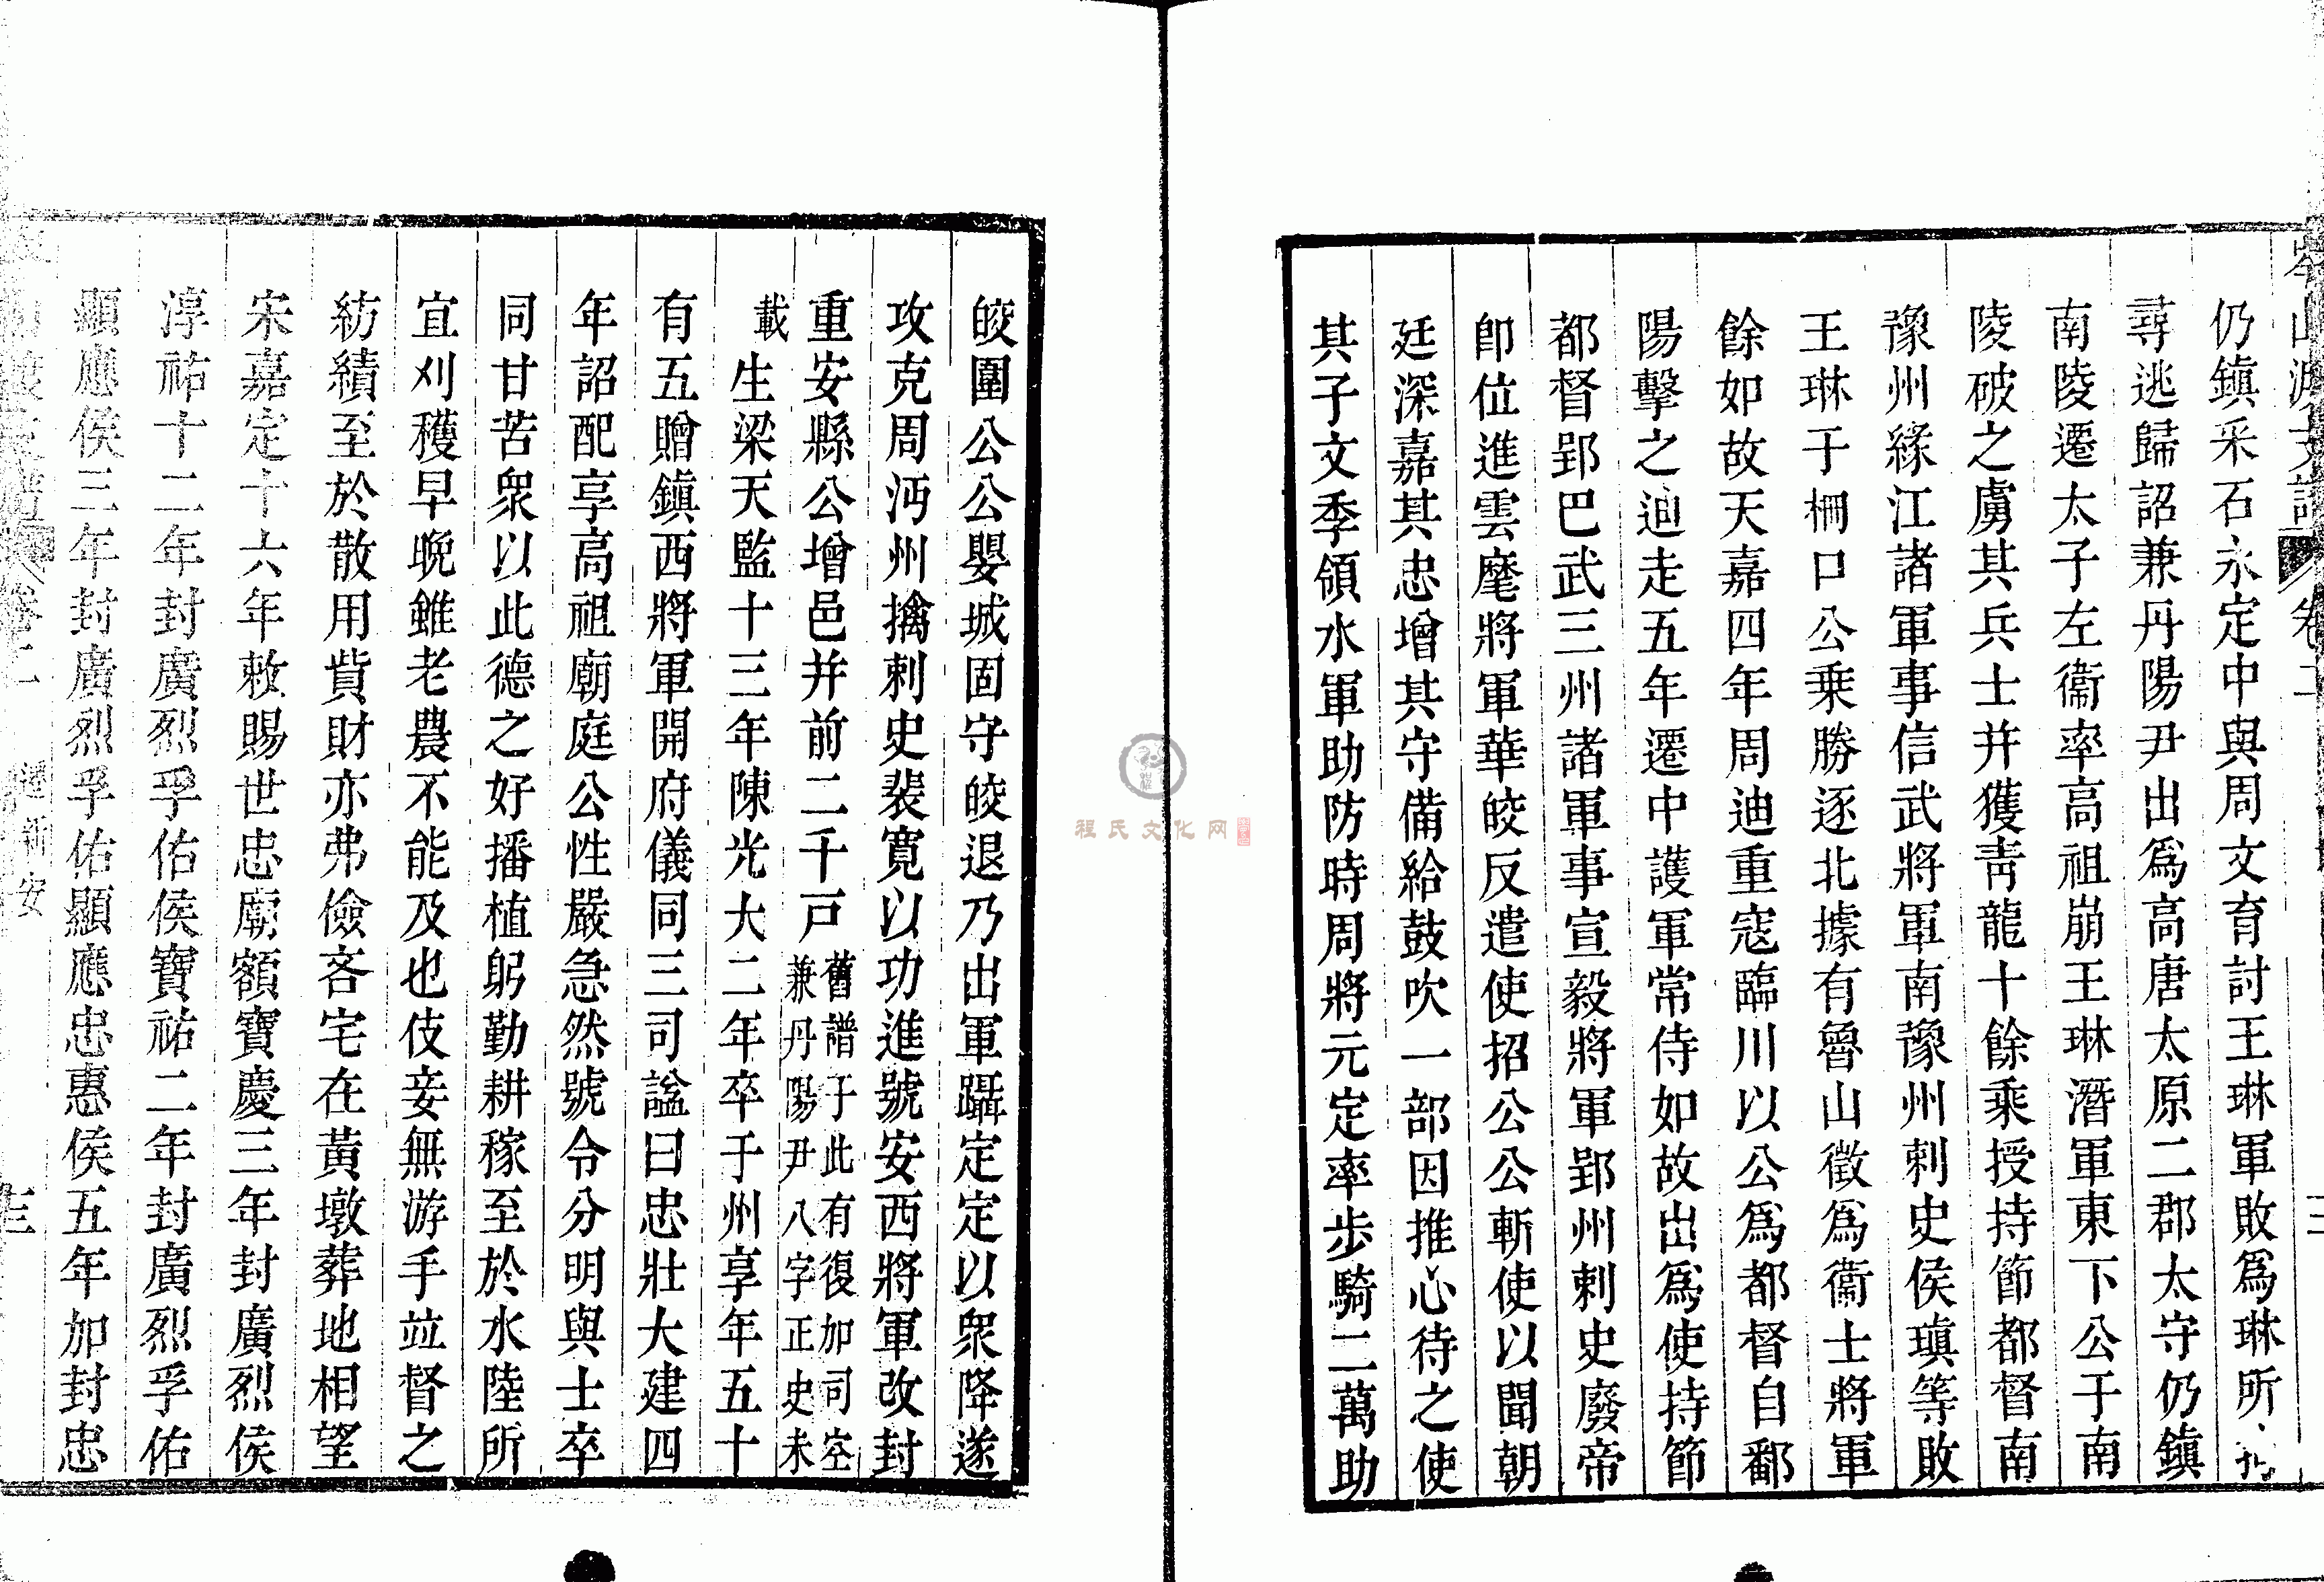 仍鎮采石永定中與周文育討王琳軍敗爲琳所
尋逃歸詔兼丹陽尹出爲高唐太原二郡太守仍鎮
南陵遷太子左衞率高祖崩王琳潛軍東下公于南
陵破之虜其兵士并獲靑龍十餘乘授持節都督南
豫州緣江諸軍事信武將軍南豫州刺史侯瑱等敗
王琳于柵口公乘勝逐北據有魯山徵爲衞士將軍
餘如故天嘉四年周迪重寇臨川以公爲都督自鄱
陽擊之迪走五年遷中護軍常侍如故出爲使持節
都督郢巴武三州諸軍事宣毅將軍郢州刺史廢帝
卽位進雲麾將軍華皎反遣使招公公斬使以聞朝
廷深嘉其忠增其守備給鼓吹一部因推心待之使
其子文季領水軍助防時周將元定率步騎二萬助
皎圍公公嬰城固守皎退乃出軍躡定定以衆降遂
攻克周沔州擒刺史裴寬以功進號安西將軍改封
重安縣公增邑并前二千戸舊譜于此有復加司空
兼丹陽尹八字正史未
載
生梁天監十三年陳光大二年卒于州享年五十
有五贈鎮西將軍開府儀同三司諡曰忠壯大建四
年詔配享高祖廟庭公性嚴急然號令分明與士卒
同甘苦衆以此德之好播植躬勤耕稼至於水陸所
宜刈穫早晚雖老農不能及也伎妾無游手竝督之
紡績至於散用貲財亦弗儉吝宅在黃墩葬地相望
宋嘉定十六年敕賜世忠廟額寶慶三年封廣烈侯
淳祐十二年封廣烈孚佑侯寶祐二年封廣烈孚佑
顯應侯三年封廣烈孚佑顯應忠惠侯五年加封忠
卷二 遷新安 三
程氏文化网